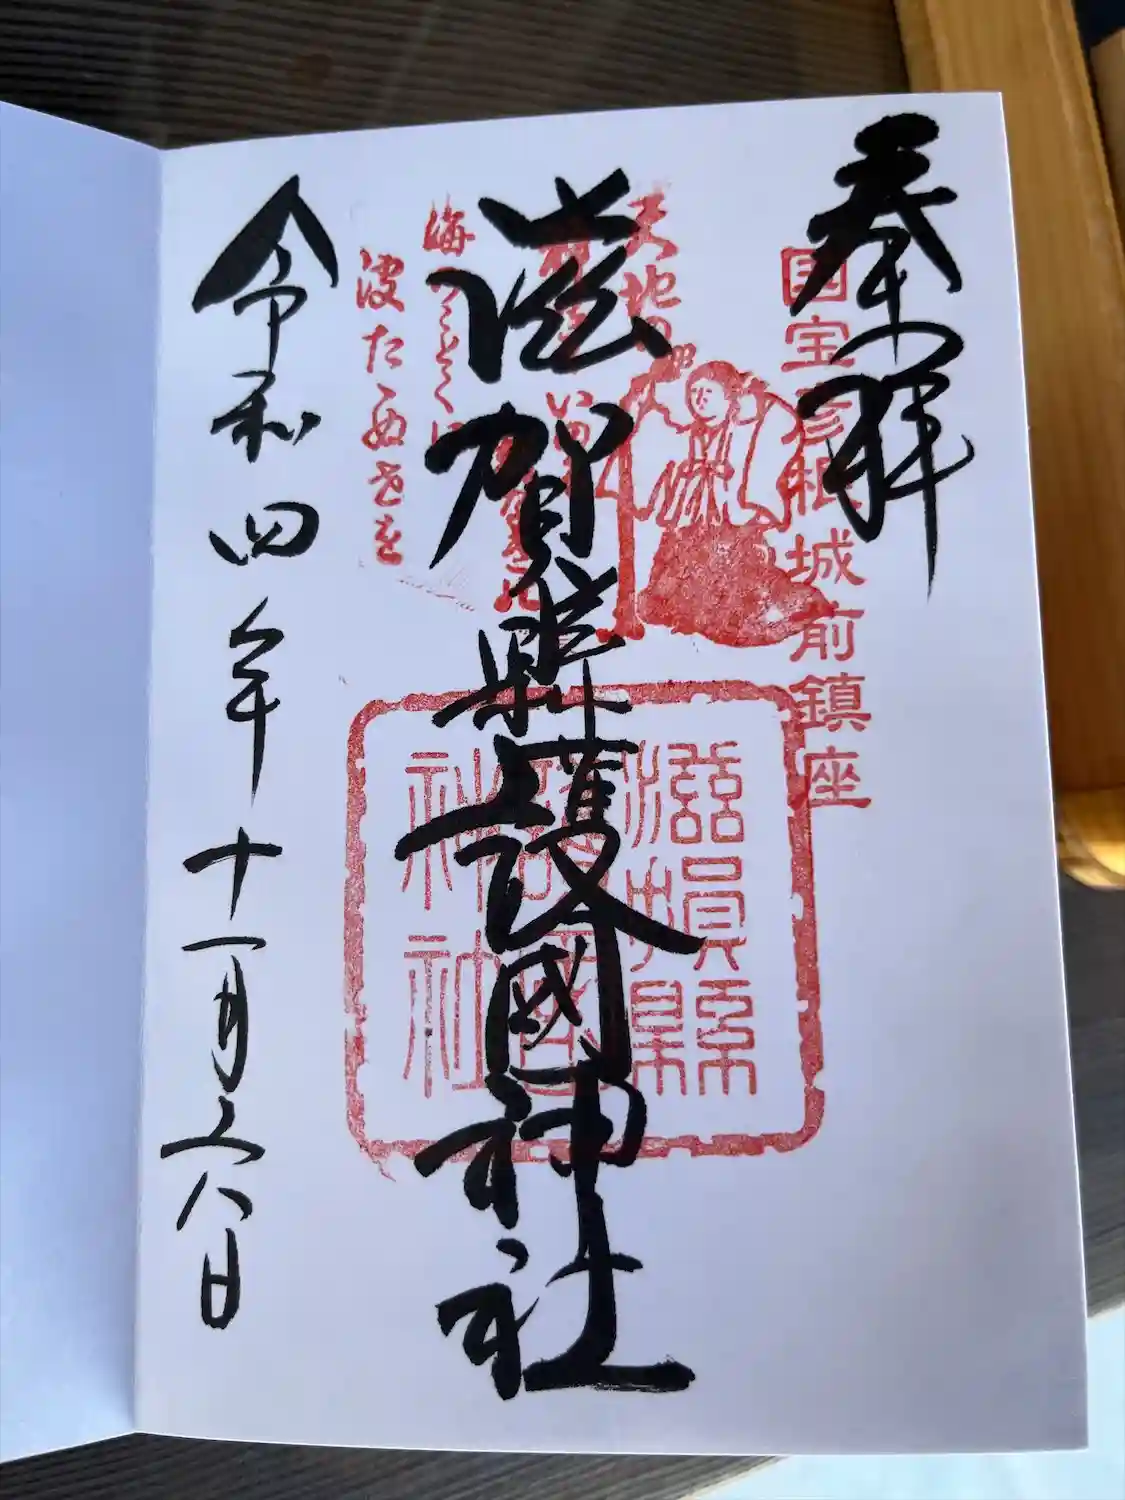 奉拝
国宝彦根城前鎮座
滋賀縣護國神社
滋賀縣
護國
神社
天地の
海のことくに
波たゝぬ世を
令和四年十一月六日